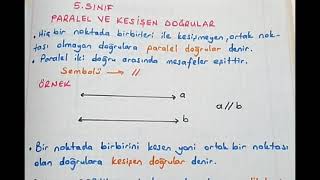 5.SINIF
PARALEL VE KESİŞEN DOĞRULAR
• Hiç bir noktada birbirleri ile kesişmeyen, ortak nok-
tası olmayan doğrulara paralel doğrular denir.
• Paralel iki doğru arasında mesafeler eşittir.
Sembolü → //
ÖRNEK
a
a//b
b
• Bir noktada birbirini kesen yani ortak bir noktası
olan doğrulara kesişen doğrular denir.